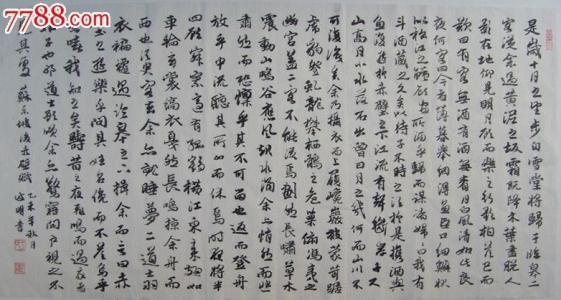 是歲十月之望步自雪堂將歸于臨皋二
客從余過黃泥之坂霜露既降木葉盡脫人
影在地仰見明月顧而樂之行歌相答已而
歎曰有客無酒有酒無肴月白風清如此良
夜何客曰今者薄暮舉網得魚巨口細鱗狀
似松江之鱸顧安所得酒乎歸而謀諸婦婦曰我有
斗酒藏之久矣以待子不時之須於是攜酒與
魚復遊於赤壁之下江流有聲斷岸千尺
山高月小水落石出曾日月之幾何而江山不
可復識矣余乃攝衣而上履巉巖披蒙茸踞
虎豹登虬龍攀棲鶻之危巢俯馮夷之
幽宮蓋二客不能從焉劃然長嘯草木
震動山鳴谷應風起水涌余亦悄然而悲
肅然而恐凜乎其不可留也返而登舟
放乎中流聽其所止而休焉時夜將半
四顧寂寥適有孤鶴橫江東來翅如
車輪玄裳縞衣戛然長鳴掠余舟而
西也須臾客去余亦就睡夢二道士羽
衣翩躚過臨皋之下揖余而言曰赤
壁之遊樂乎問其姓名俛而不答嗚呼
噫嘻我知之矣疇昔之夜飛鳴而過我者
非子也耶道士顧笑余亦驚寤開戶視之不
見其處 蘇東坡後赤壁賦
乙未年秋月
明書